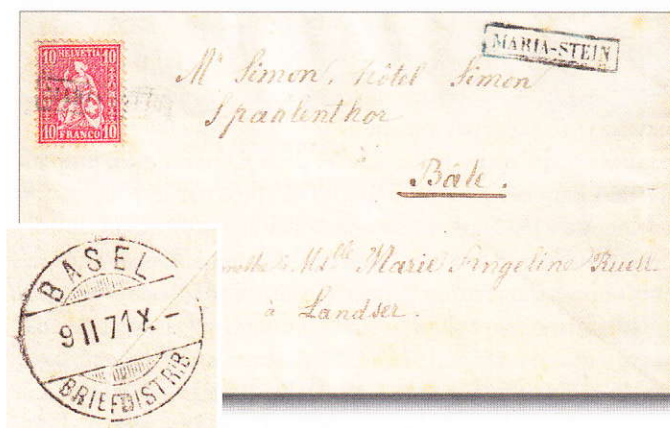 10 HELVETIA 10
10 FRANCO 10
MARIA-STEIN
Mr Simon, hôtel Simon
Spaalenthor
à
Bâle.
Mlle Marie Angeline
à Landser.
BASEL
9 II 71 X. –
BRIEFDISTRIB